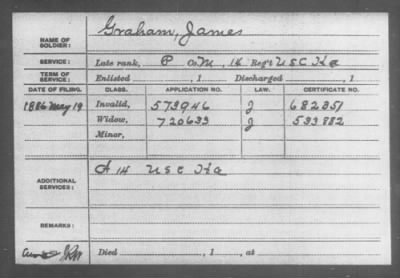 NAME OF SOLDIER: Graham, James
SERVICE: Late rank, P Co M, 14 Reg't U S C Ha
TERM OF SERVICE: Enlisted , 1 Discharged , 1
DATE OF FILING. CLASS. APPLICATION NO. LAW. CERTIFICATE NO.
1886 May 19 Invalid, 573946 J 682351
Widow, 720633 J 533882
Minor,
ADDITIONAL SERVICES: A 14 U S C Ha
REMARKS:
Died , 1 , at